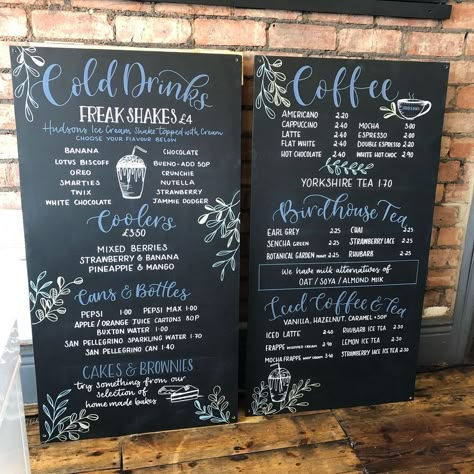 Cold Drinks
FREAK SHAKES £4
Hudsons Ice Cream Shake topped with Cream
CHOOSE YOUR FLAVOUR BELOW
BANANA
LOTUS BISCOFF
OREO
SMARTIES
TWIX
WHITE CHOCOLATE
CHOCOLATE
BUENO-ADD 50P
CRUNCHIE
NUTELLA
STRAWBERRY
JAMMIE DODGER
Coolers
£3.50
MIXED BERRIES
STRAWBERRY & BANANA
PINEAPPLE & MANGO
Cans & Bottles
PEPSI 1·00 PEPSI MAX 1·00
APPLE / ORANGE JUICE CARTONS 50P
BUXTON WATER 1·00
SAN PELLEGRINO SPARKLING WATER 1·70
SAN PELLEGRINO CAN 1·40
CAKES & BROWNIES
try something from our
selection of
home made bakes
Coffee
AMERICANO 2·20
CAPPUCCINO 2·40
LATTE 2·40
FLAT WHITE 2·40
HOT CHOCOLATE 2·40
MOCHA 3·00
ESPRESSO 2·00
DOUBLE ESPRESSO 2·20
WHITE HOT CHOC 2·90
YORKSHIRE TEA 1·70
Birdhouse Tea
EARL GREY 2·25
SENCHA GREEN 2·25
BOTANICAL GARDEN 2·25
CHAI 2·25
STRAWBERRY LACE 2·25
RHUBARB 2·25
We have milk alternatives of
OAT / SOYA / ALMOND MILK
Iced Coffee & Tea
VANILLA, HAZELNUT, CARAMEL +50P
ICED LATTE 2·40
FRAPPE WHIPPED CREAM
MOCHA FRAPPE WHIP CREAM
RHUBARB ICE TEA 2·30
LEMON ICE TEA 2·30
STRAWBERRY LACE ICE TEA 2·30